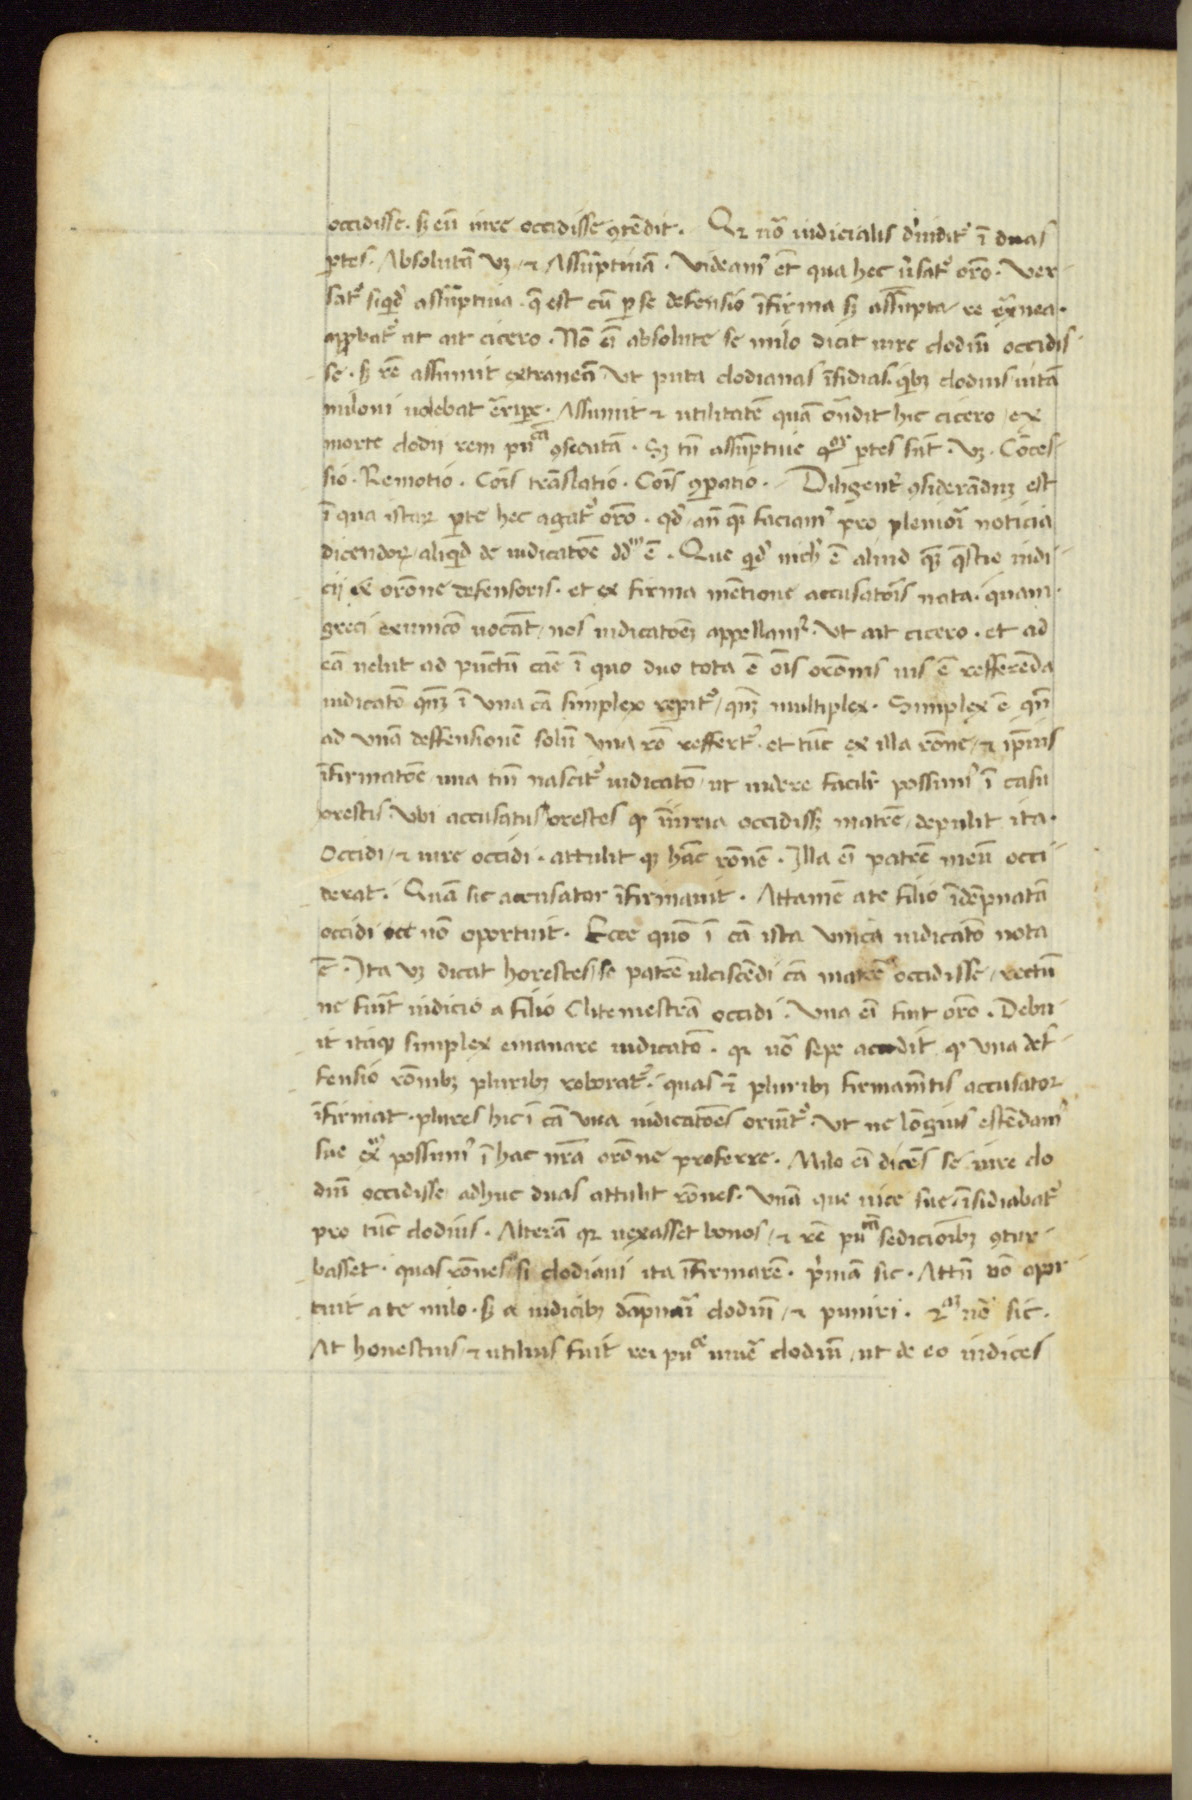 occidisse. sꝫ eū iure occidisse ꝯtēdit. Qꝛ uō iudicialis diuidit᷑ ī duas
ꝑtes. Absolutā vꝫ. & Assūptiuā. Videam᷒ et̄ qua hec ūsat᷑ orō. Ver
sat᷑ siqͥdē assūptiua. q̄ est cū ꝑ se defensio īfirma sꝫ assūpta re
appbat᷑ ut ait cicero. Nō eī absolute se milo dicit iure clodiū occidis
se. sꝫ rē assumit extraneā. Ut puta clodianas īsidias. qͥbꝫ clodius uitā
miloni uolebat eripe. Assumit & utilitatē quā oñdit hic cicero, ex
morte clodij rem pu᷒cā ꝯsecutā. Sꝫ tn̄ assūptiue qͦꝛ ꝑtes sūt. vꝫ. Cōces
sio. Remotio. Cōis trāslatio. Cōis ꝯꝑatio. Diligent᷑ ꝯsiderādūꝫ est
ī qua istaꝝ ꝑte hec agat᷑ orō. qd̄ an̄ qͣꝫ faciam᷒ pro pleniori noticia
dicendoꝝ, aliqͥd de iudicatōe dd᷒ ē. Que qͥdē nich᷑ ē aliud qͣꝫ q̄stio iudi
cij ex orōne defensoris. et ex firma mētione accusatōis nata. quam
greci crinomēon uocāt, nos iudicatōeꝫ appellam᷒. Ut ait cicero. et ad
eā uelut ad pūctū cāe ī quo
iudicatō qn̄qꝫ ī una cā simplex repit᷑, qn̄qꝫ multiplex. Simplex ē qn̄
ad unā deffensionē solū una rō reffert᷑. et tūc ex illa rōne, & ip̄ius
īfirmatōe una tm̄ nascit᷑ iudicatō, ut uidere facilr̄ possum᷒ ī casu
orestis. Ubi accusatus orestes qꝫ īiuria occidisset matrē, depulit ita.
Occidi, & iure occidi. attulit qꝫ hāc rōnē. Illa eī patrē meū occi
derat. Quā sic accusator īfirmauit. Attamē a te filio īdēpnatā
occidi nō oportuit. Ecce quō ī cā ista unica iudicatō nota
ē. Ita vꝫ dicat horestes se patrē ulciscēdi cā matrē occidisse, rectū
ne fuit iudicio a filio Clitemestrā occidi. Una eī fuit orō. Debu
it itaqꝫ simplex emanare iudicatō. qꝛ uō sepe accidit qꝫ una def
fensio rōnibꝫ pluribꝫ roborat᷑. quas & pluribꝫ firmamētis accusator
īfirmat. plures hic ī cā una iudicatōes oriūt᷑. Ut ne lōgius estēdam᷒
sue possum᷒ ī hac nrā orōne proferre. Milo eī dicēs se iure clo
diū occidisse adhuc duas attulit rōnes. Unā que uite sue īsidiabat᷑
pro tūc clodius. Alterā qꝛ uexasset bonos, & rē pu᷒cā sedicionibꝫ ꝯtur
basset. quas rōnes si clodiani ita īfirmarē. pͥmā sic. Attn̄ nō opor
tuit a te milo. sꝫ a iudicibꝫ dāpnari clodiū, & puniri. uō sic.
At honestius, & utilius fuit rei pu᷒ce uiuē clodiū, ut de eo iudices